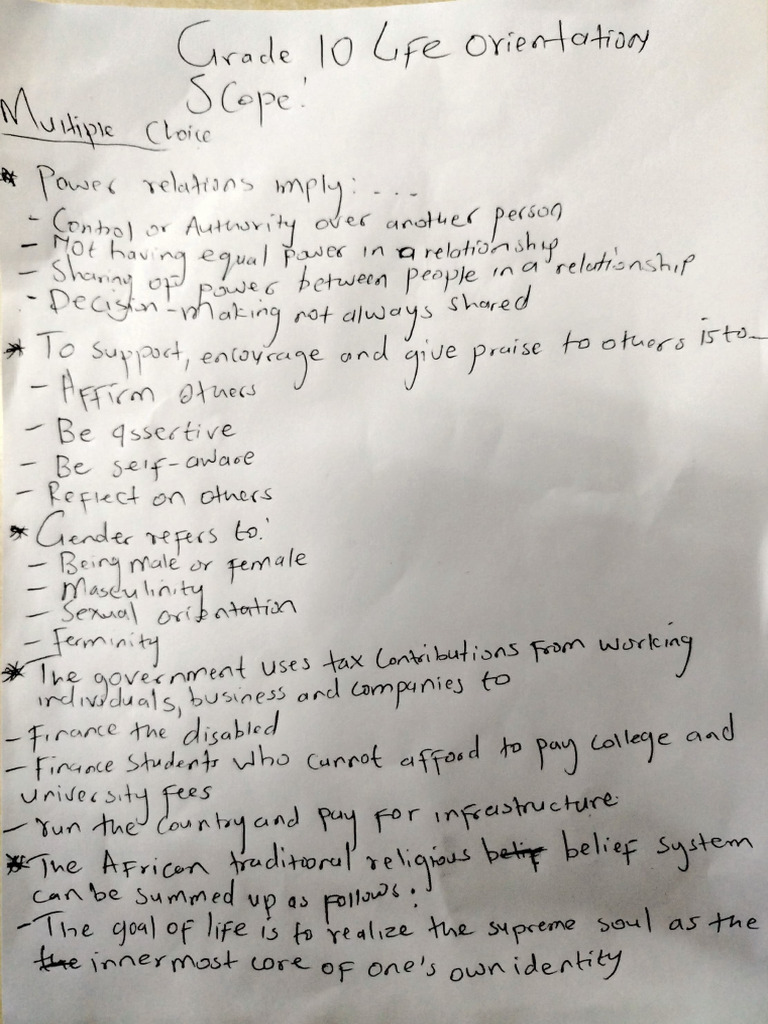 Grade 10 Life Orientation
Scope:
Multiple Choice
* Power relations imply: ....
- Control or Authority over another person
- Not having equal power in a relationship
- Sharing of power between people in a relationship
- Decision-making not always shared
* To support, encourage and give praise to others is to_
- Affirm others
- Be assertive
- Be self-aware
- Reflect on others
* Gender refers to:
- Being male or female
- Masculinity
- Sexual orientation
- Ferminity
* The government uses tax contributions from working
individuals, business and companies to
- Finance the disabled
- Finance students who cannot afford to pay college and
university fees
- run the country and pay for infrastructure
* The African traditional religious belief system
can be summed up as follows:
- The goal of life is to realize the supreme soul as the
innermost core of one's own identity